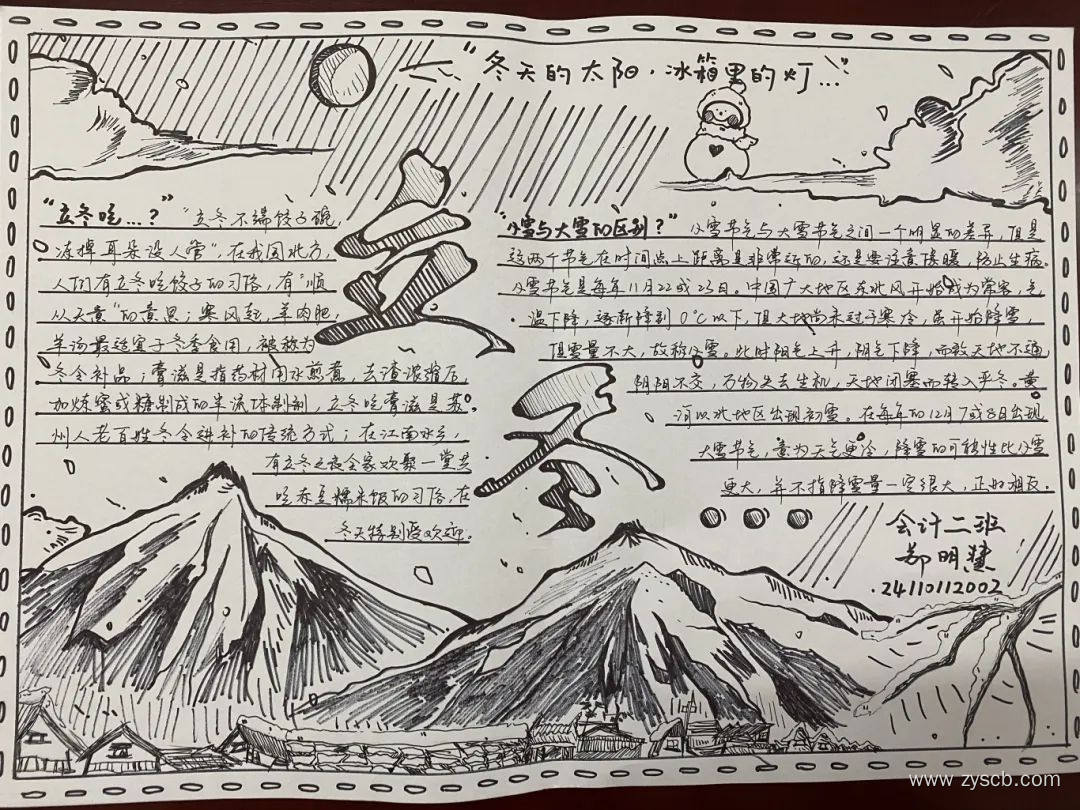 "冬天的太阳·冰箱里的灯..."
立冬
"立冬吃...?" "立冬不端饺子碗,
冻掉耳朵没人管", 在我国北方,
人们有立冬吃饺子的习俗, 有"顺
从天意"的意思; 寒风起, 羊肉肥,
羊汤最适宜于冬季食用, 被称为
冬令补品; 膏滋是指药材用水煎煮, 去渣浓缩后,
加炼蜜或糖制成的半流体制剂, 立冬吃膏滋是苏
州人老百姓冬令进补的传统方式; 在江南水乡,
有立冬之夜全家欢聚一堂共
吃赤豆糯米饭的习俗, 在
冬天特别受欢迎。
"小雪与大雪的区别?" 小雪节气与大雪节气之间一个明显的差异, 但是
这两个节气在时间点上距离是非常近的, 还是要注意保暖, 防止生病。
小雪节气是每年11月22或23日。中国广大地区东北风开始成为常客, 气
温下降, 逐渐降到0℃以下, 但大地尚未过于寒冷, 虽开始降雪,
但雪量不大, 故称小雪。此时阳气上升, 阴气下降, 而致天地不通,
阴阳不交, 万物失去生机, 天地闭塞而转入严冬。黄
河以北地区出现初雪。在每年的12月7或8日出现
大雪节气, 意为天气更冷, 降雪的可能性比小雪
更大, 并不指降雪量一定很大, 正好相反。
会计二班
郑明慧
24110112002
www.zyscb.com